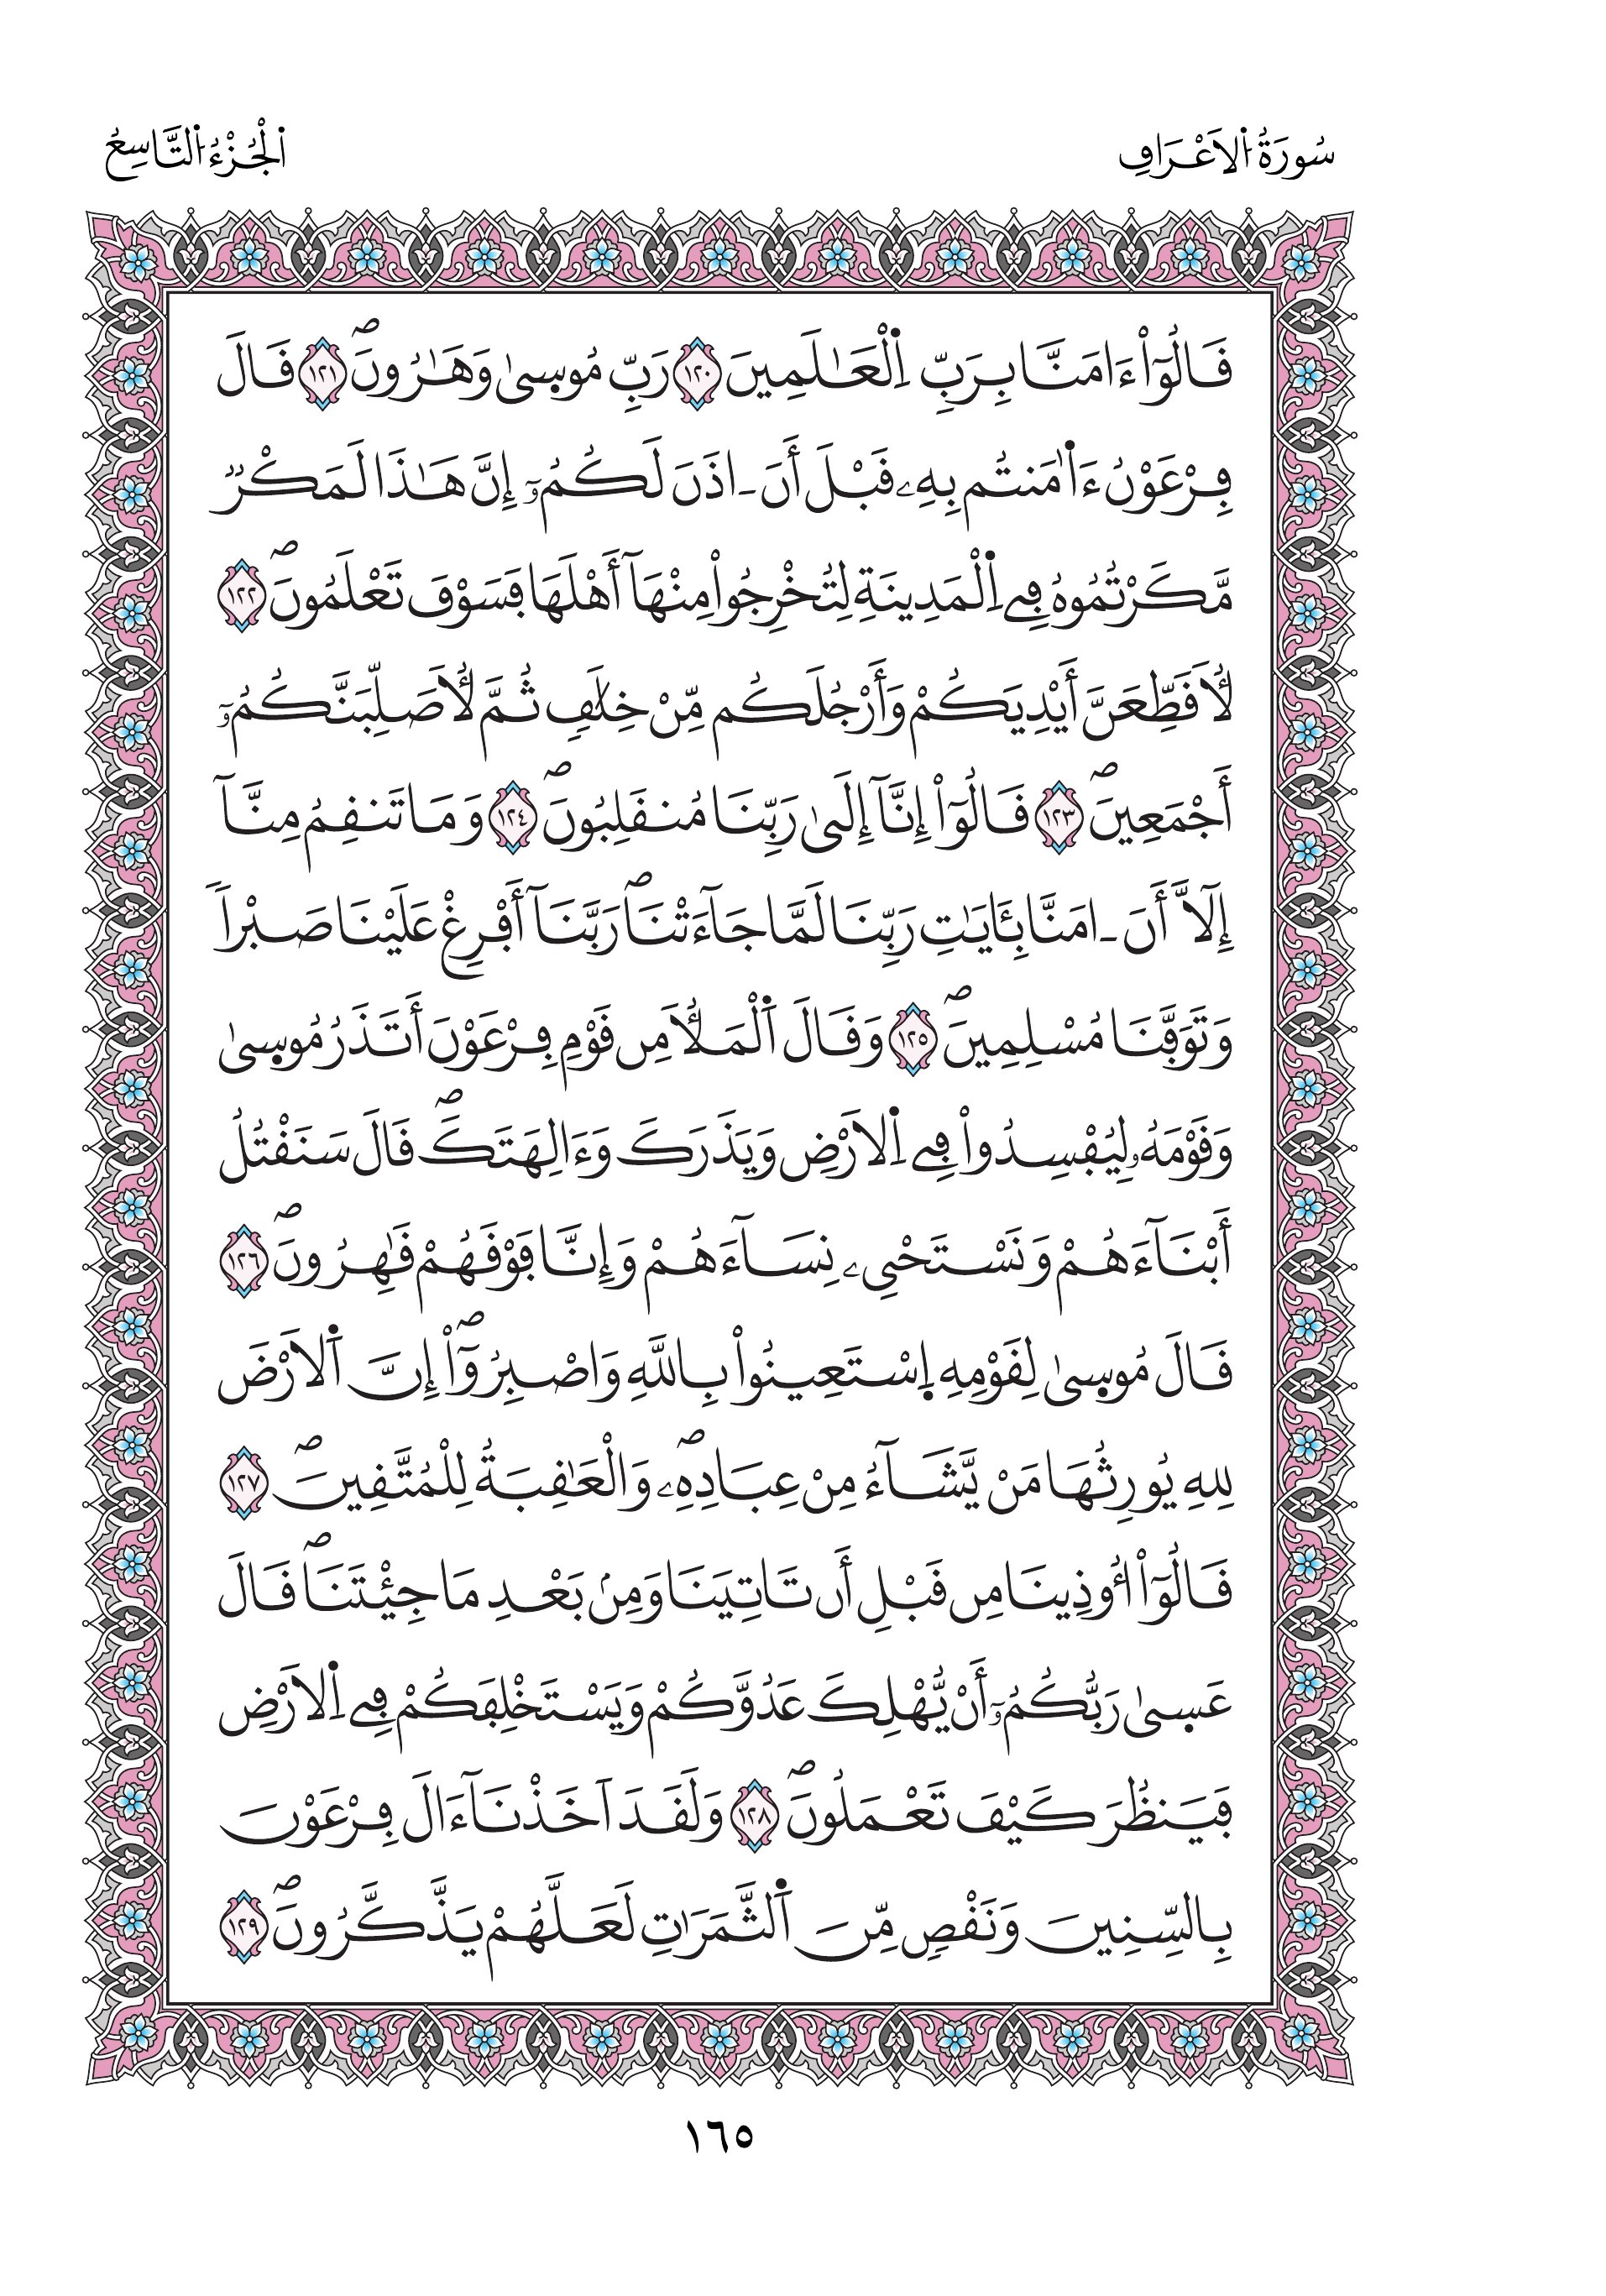 سُورَةُ اُ۬لَاعْرَافِ
اَ۬لْجُزْءُ اُ۬لتَّاسِعُ
قَالُوٓاْ ءَامَنَّا بِرَبِّ اِ۬لْعَٰلَمِينَ ١٢٠ رَبِّ مُوس۪يٰ وَهَٰرُونَۖ ١٢١ قَالَ
فِرْعَوْنُ ءَا۬مَنتُم بِهِۦ قَبْلَ أَنَ اٰذَنَ لَكُمُۥٓ إِنَّ هَٰذَا لَمَكْرٞ
مَّكَرْتُمُوهُ فِے اِ۬لْمَدِينَةِ لِتُخْرِجُواْ مِنْهَآ أَهْلَهَا فَسَوْفَ تَعْلَمُونَۖ ١٢٢
لَأُقَطِّعَنَّ أَيْدِيَكُمْ وَأَرْجُلَكُم مِّنْ خِلَٰفٖ ثُمَّ لَأُصَلِّبَنَّكُمُۥٓ
أَجْمَعِينَۖ ١٢٣ قَالُوٓاْ إِنَّآ إِلَيٰ رَبِّنَا مُنقَلِبُونَۖ ١٢٤ وَمَا تَنقِمُ مِنَّآ
إِلَّآ أَنَ اٰمَنَّا بِـَٔايَٰتِ رَبِّنَا لَمَّا جَآءَتْنَاۖ رَبَّنَآ أَفْرِغْ عَلَيْنَا صَبْراٗ
وَتَوَفَّنَا مُسْلِمِينَۖ ١٢٥ وَقَالَ اَ۬لْمَلَأُ مِن قَوْمِ فِرْعَوْنَ أَتَذَرُ مُوس۪يٰ
وَقَوْمَهُۥ لِيُفْسِدُواْ فِے اِ۬لَارْضِ وَيَذَرَكَ وَءَالِهَتَكَۖ قَالَ سَنَقْتُلُ
أَبْنَآءَهُمْ وَنَسْتَحْيِۦ نِسَآءَهُمْ وَإِنَّا فَوْقَهُمْ قَٰهِرُونَۖ ١٢٦
قَالَ مُوس۪يٰ لِقَوْمِهِ اِ۪سْتَعِينُواْ بِاللَّهِ وَاصْبِرُوٓاْۖ إِنَّ اَ۬لَارْضَ
لِلهِ يُورِثُهَا مَنْ يَّشَآءُ مِنْ عِبَادِهِۦۖ وَالْعَٰقِبَةُ لِلْمُتَّقِينَۖ ١٢٧
قَالُوٓاْ أُوذِينَا مِن قَبْلِ أَن تَاتِيَنَا وَمِنۢ بَعْدِ مَا جِئْتَنَاۖ قَالَ
عَس۪يٰ رَبُّكُمُۥٓ أَنْ يُّهْلِكَ عَدُوَّكُمْ وَيَسْتَخْلِفَكُمْ فِے اِ۬لَارْضِ
فَيَنظُرَ كَيْفَ تَعْمَلُونَۖ ١٢٨ وَلَقَدَ اَخَذْنَآ ءَالَ فِرْعَوْنَ
بِالسِّنِينَ وَنَقْصٖ مِّنَ اَ۬لثَّمَرَٰتِ لَعَلَّهُمْ يَذَّكَّرُونَۖ ١٢٩
١٦٥